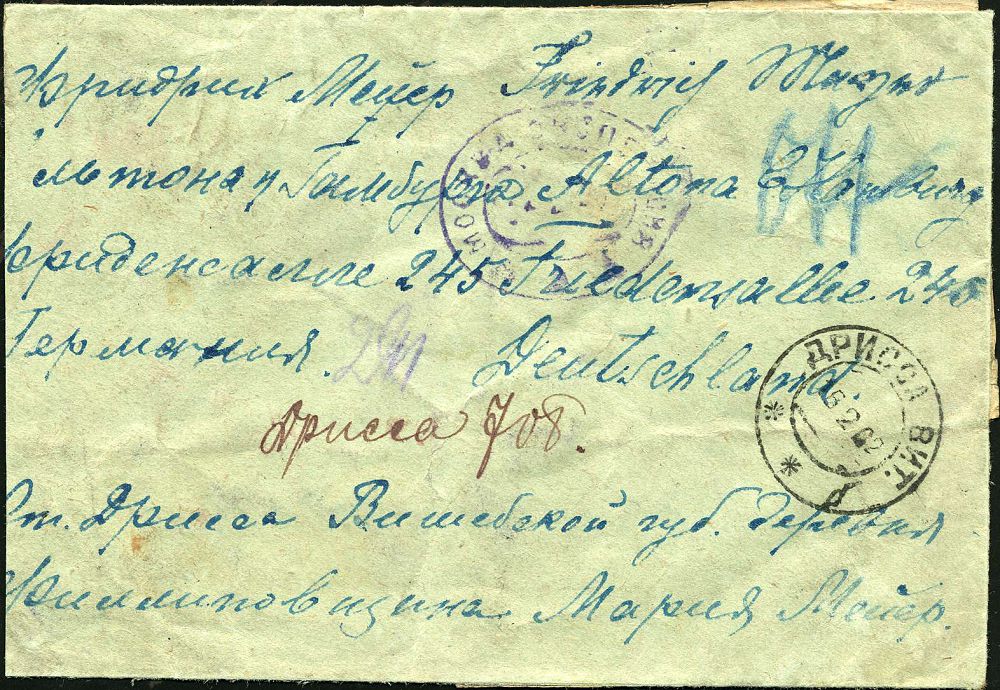 Фридрих Мейер Friedrich Meyer
льтона у Гамбурга Altona Hamburg
Фриденсалле 245 Friedensallee 245
Германия. Deutschland.
Дрисса 708.
Ст. Дрисса Витебской губ. деревня
Филлиповщина Мария Мейер.
МОСКВА ЭКСПЕДИЦИЯ
ДРИССА ВИТ.